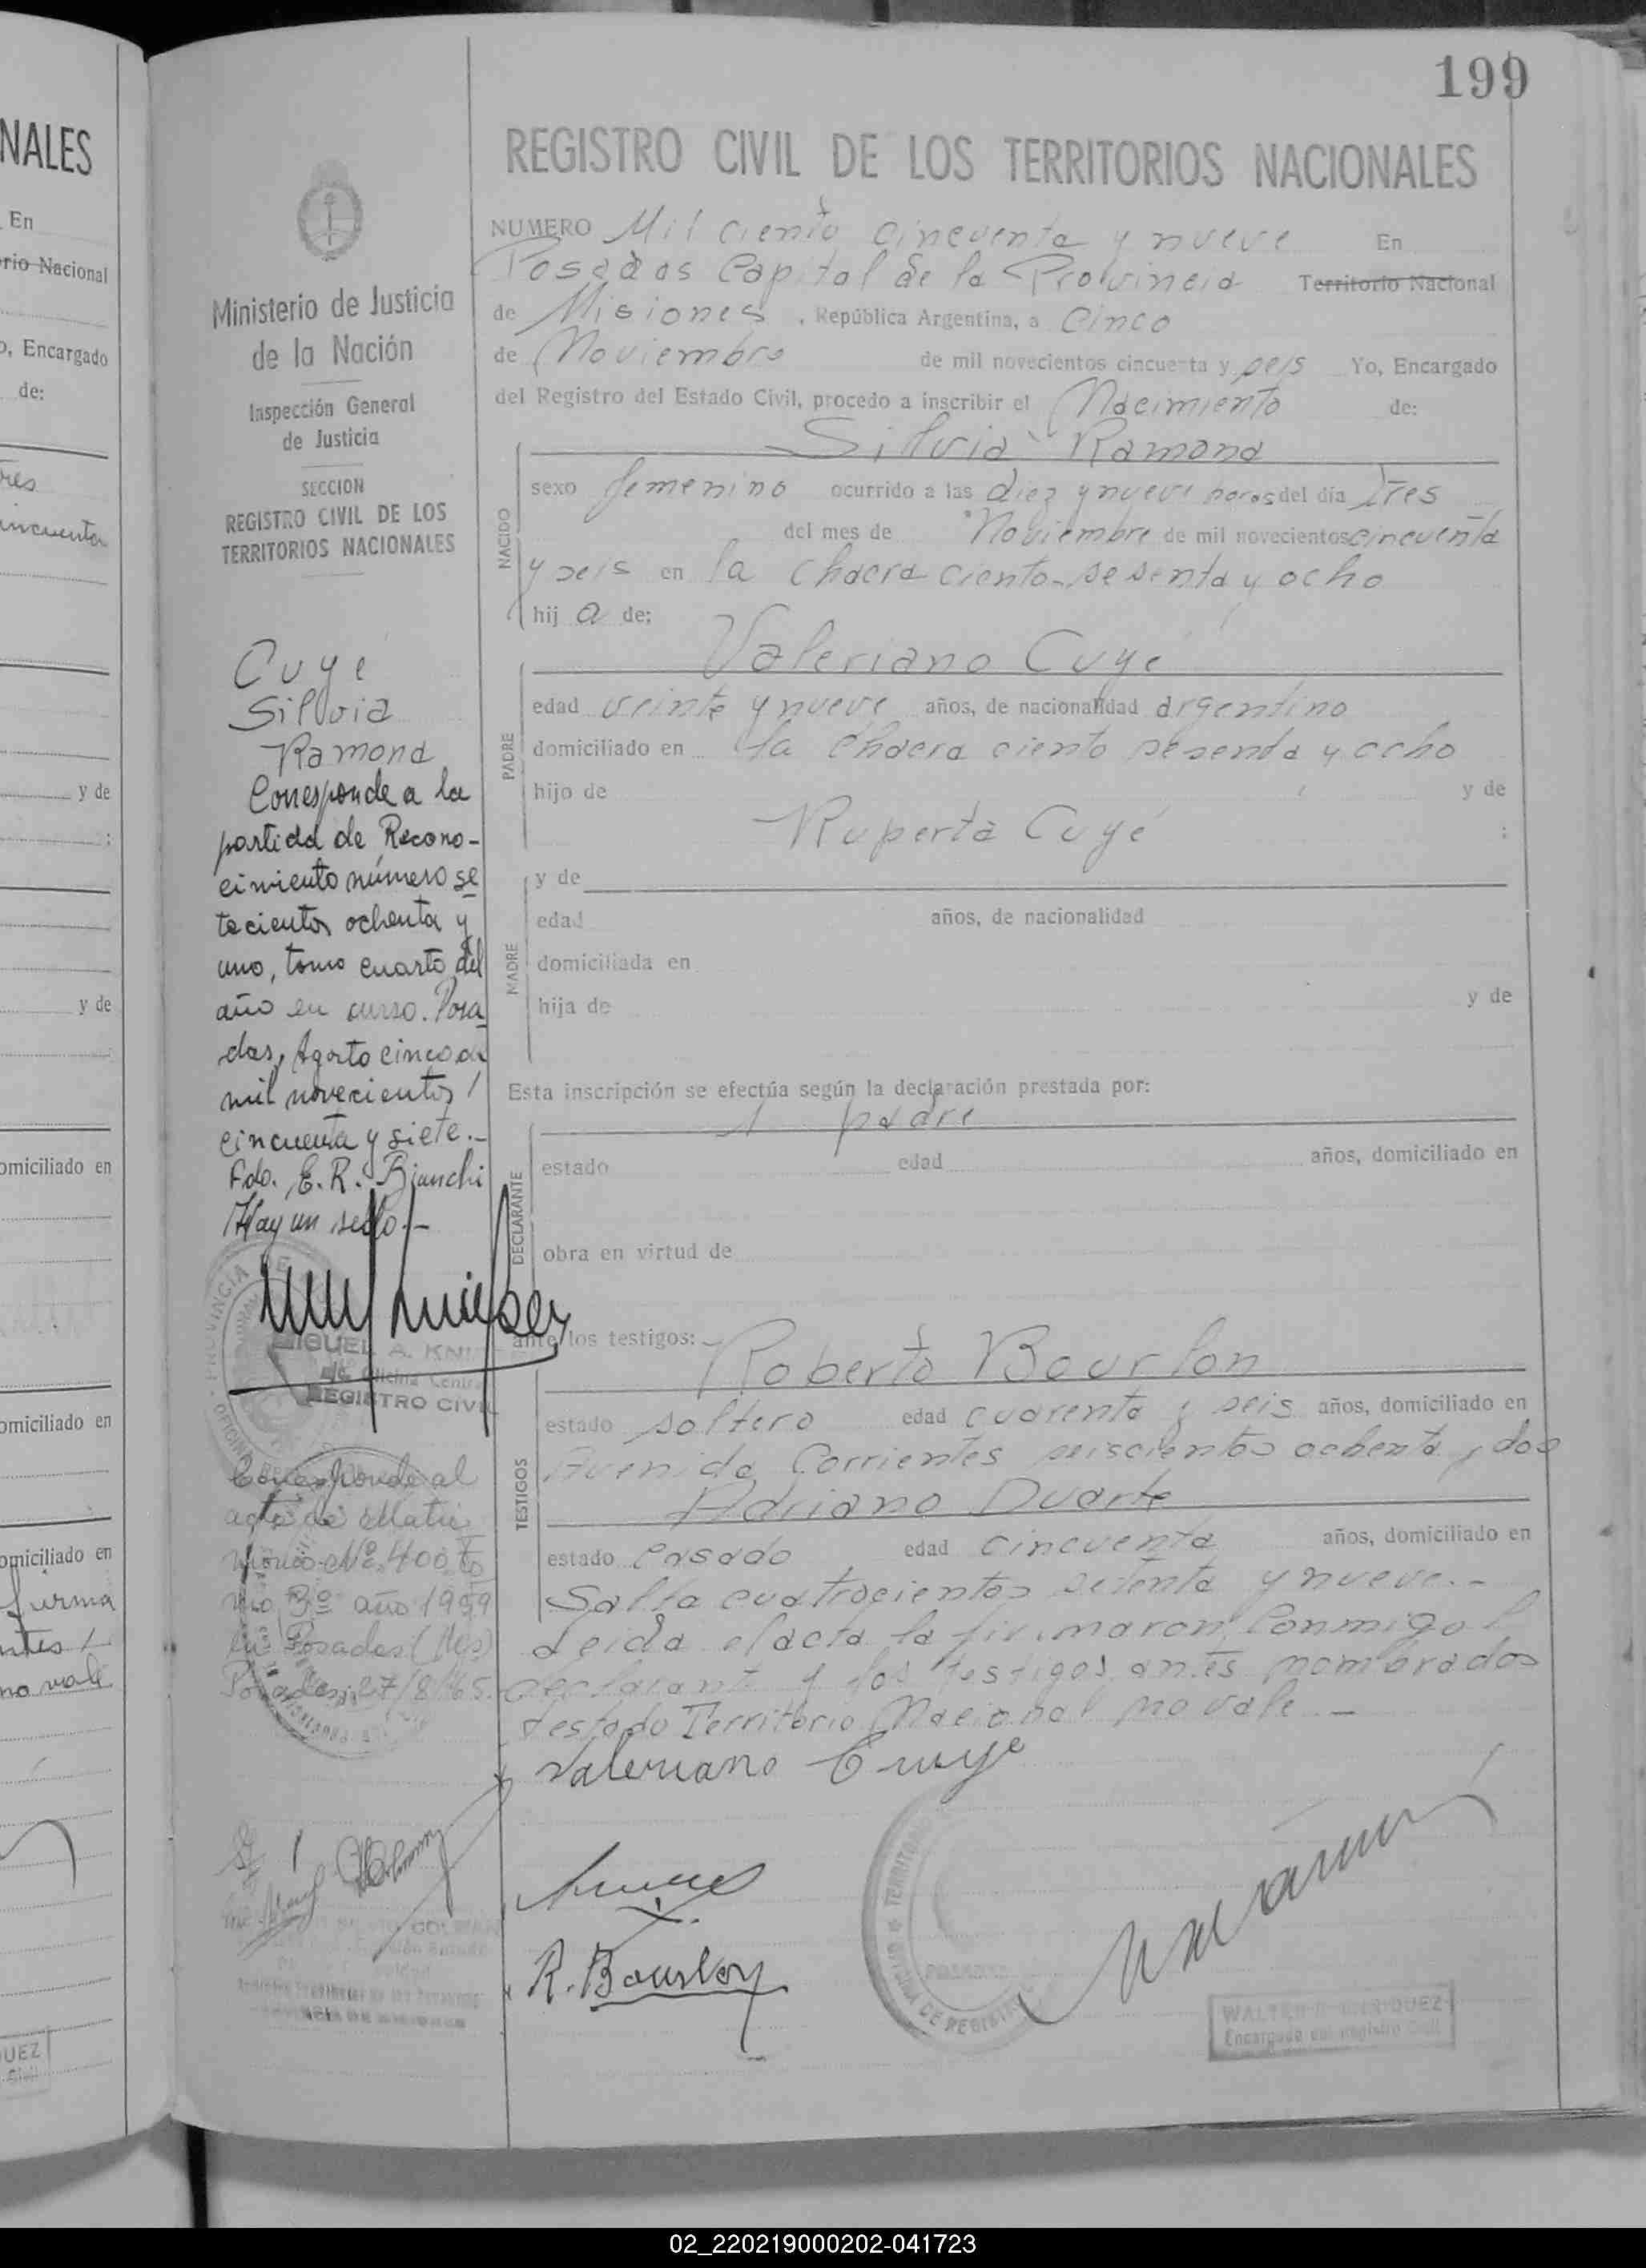 199
NALES
En
rio Nacional
o, Encargado
de:
res
incuenta
y de
:
y de
omiciliado en
omiciliado en
omiciliado en
firma
ntes /
no vale
UEZ
Civil
Ministerio de Justicia
de la Nación
Inspección General
de Justicia
SECCION
REGISTRO CIVIL DE LOS
TERRITORIOS NACIONALES
Cuyé
Silvia
Ramona
Corresponde a la
partida de Recono-
cimiento número se
tecientos ochenta y
uno, tomo cuarto del
año en curso. Posa
das, Agosto cinco de
mil novecientos /
cincuenta y siete.-
Fdo. E. R. Bianchi
Hay un sello.-
PROVINCIA DE
MIGUEL A.
Oficina Central
REGISTRO CIVIL
Corresponde al
acta de Matri
monio Nº 400 to
mo 3º año 1959
en Posadas (Mes)
Posadas, 27/8/65.
REGISTRO CIVIL DE LOS TERRITORIOS NACIONALES
NUMERO Mil ciento cincuenta y nueve En
Posadas Capital de la Provincia Territorio Nacional
de Misiones, República Argentina, a Cinco
de Noviembre de mil novecientos cincuenta y seis Yo, Encargado
del Registro del Estado Civil, procedo a inscribir el Nacimiento de:
Silvia Ramona
NACIDO
sexo femenino ocurrido a las diez y nueve horas del día Tres
del mes de Noviembre de mil novecientos cincuenta
y seis en la chacra ciento sesenta y ocho
hij a de:
Valeriano Cuyé
PADRE
edad veinte y nueve años, de nacionalidad argentino
domiciliado en la chacra ciento sesenta y ocho
hijo de y de
Ruperta Cuyé :
MADRE
y de
edad años, de nacionalidad
domiciliada en
hija de y de
Esta inscripción se efectúa según la declaración prestada por:
l padre
DECLARANTE
estado edad años, domiciliado en
obra en virtud de
ante los testigos:
Roberto Bourlon
TESTIGOS
estado soltero edad cuarenta y seis años, domiciliado en
Avenida Corrientes seiscientos ochenta y dos
Adriano Duarte
estado casado edad cincuenta años, domiciliado en
Salta cuatrocientos setenta y nueve.-
Leida el acta la firmaron conmigo l
declarante y los testigos antes nombrados
testado Territorio Nacional no vale.-
Valeriano Cuyé
R. Bourlon
WALTER R. ENRIQUEZ
Encargado del Registro Civil
02_220219000202-041723